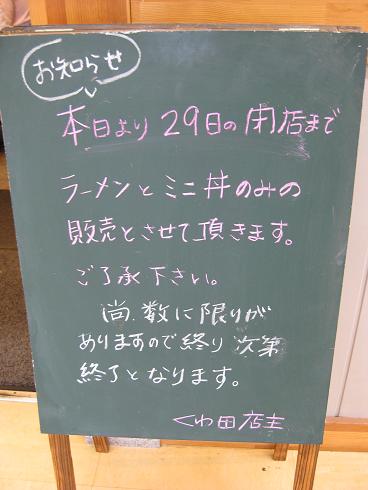 お知らせ
本日より29日の閉店まで
ラーメンとミニ丼のみの
販売とさせて頂きます。
ご了承下さい。
尚、数に限りが
ありますので終り次第
終了となります。
くわ田店主